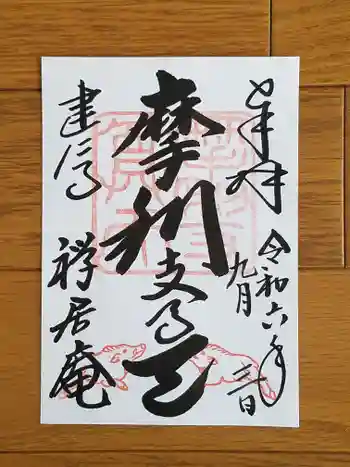 奉拝
令和六年
九月
三日
摩利支尊天
建長寺
禅居庵